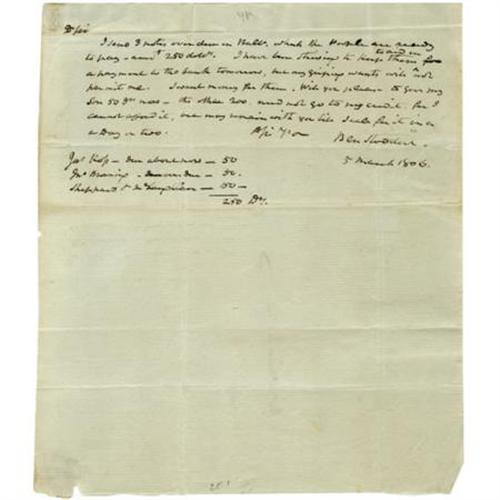 Dr Sir
I send 3 notes over due in Balto. which the People are ready
to pay - amt. 250 dolrs. I have been striving to keep them for
to aid in
a payment to the bank tomorrow, but my wants will not
permit me. I want money for them. Will you please to give my
Son 50 Drs now - the other 200 need not go to my credit for I
cannot afford it, but may remain with you till I call for it in
a Day or two.
Ben Stoddert
5 March 1806.
Jas - due about now - 50
- over due - 50.
Sheppard & - 150 -
250 Drs.